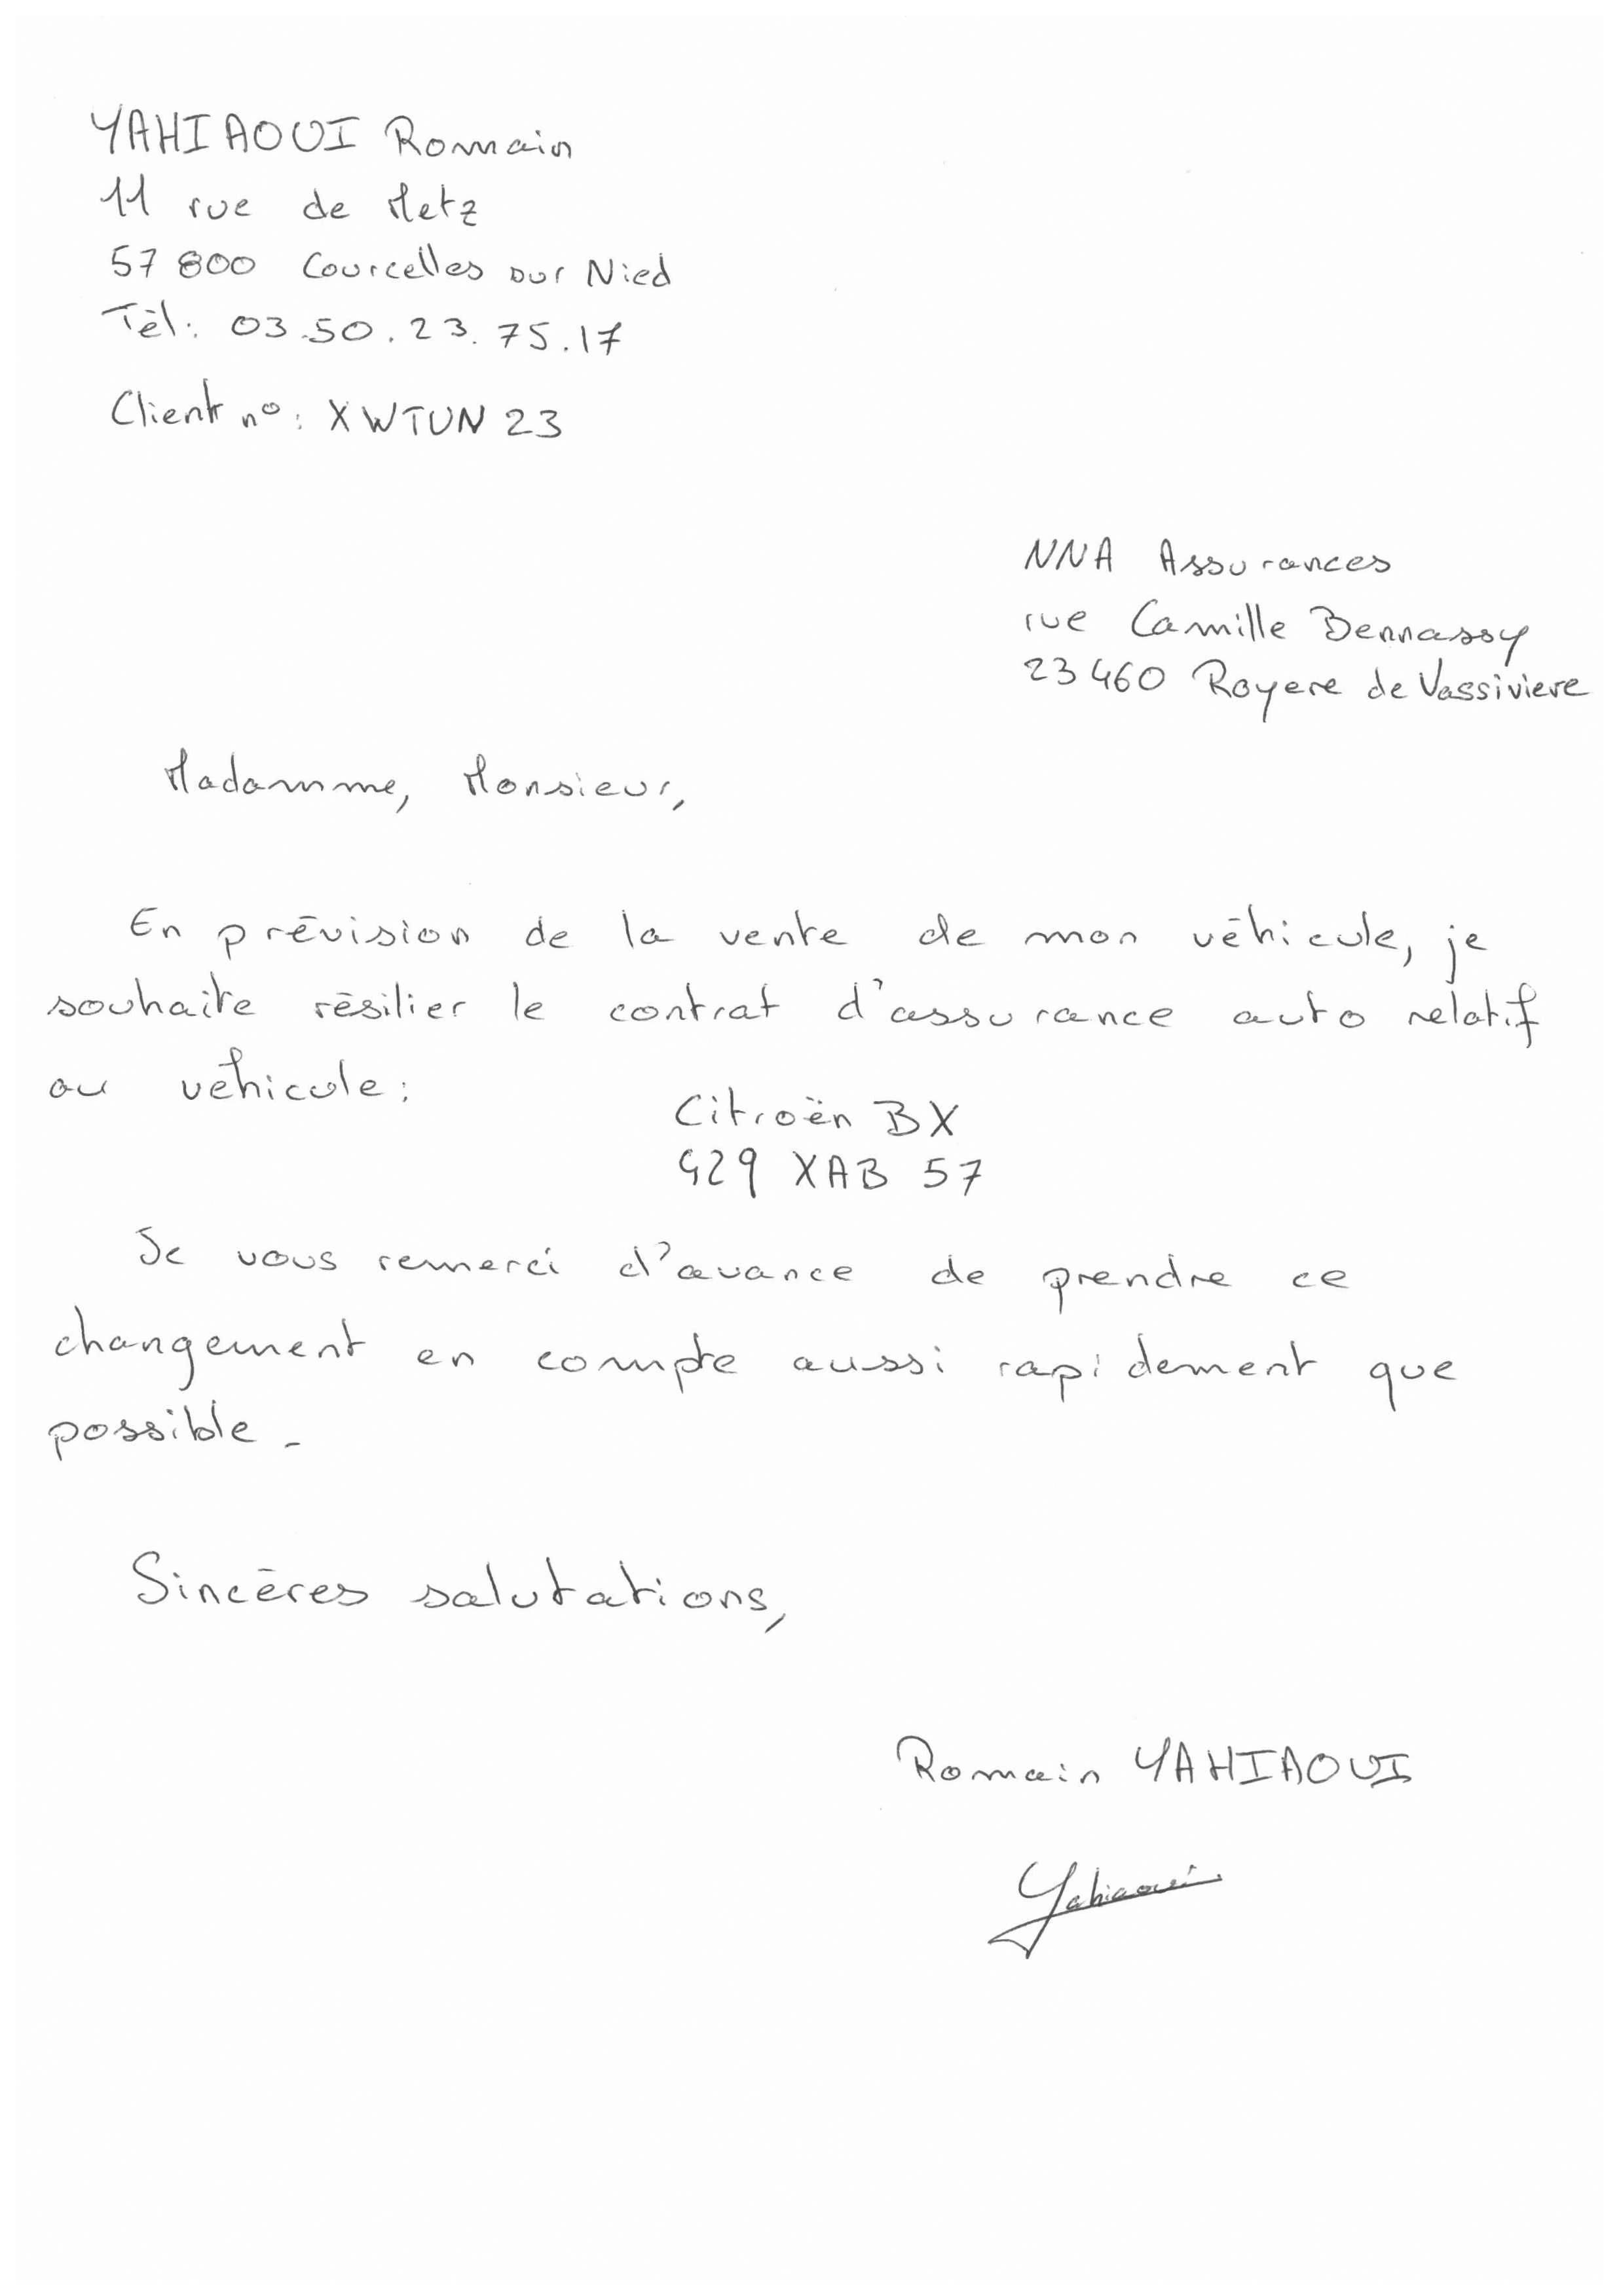 YAHIAOUI Romain
11 rue de Metz
57 800 Courcelles sur Nied
Tél: 03.50.23.75.17
Client n°: XWTUN 23
NNA Assurances
rue Camille Bennassy
23 460 Royere de Vassiviere
Madamme, Monsieur,
En prévision de la vente de mon véhicule, je
souhaite résilier le contrat d'assurance auto relatif
au vehicule:
Citroën BX
429 XAB 57
Je vous remerci d'avance de prendre ce
changement en compte aussi rapidement que
possible.
Sincères salutations,
Romain YAHIAOUI
Yahiaoui